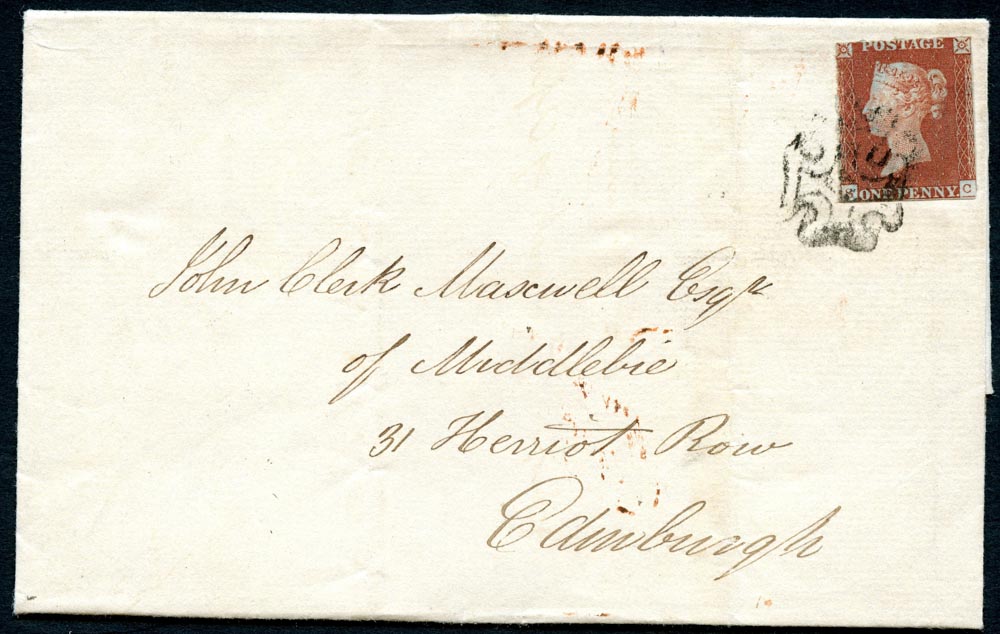 POSTAGE
ONE PENNY.
C
John Clerk Maxwell Esqr
of Middlebie
31 Herriot Row
Edinburgh